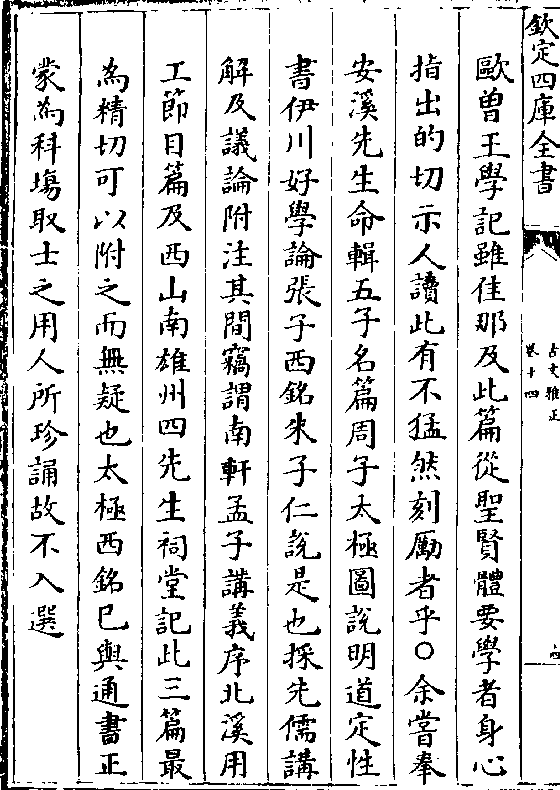 欽定四庫全書
古文雅正
卷十四
歐曽王學記雖佳那及此篇從聖賢體要學者身心
指出的切示人讀此有不猛然刻勵者乎○余嘗奉
安溪先生命輯五子名篇周子太極圖說明道定性
書伊川好學論張子西銘朱子仁説是也採先儒講
解及議論附注其間竊謂南軒孟子講義序北溪用
工節目篇及西山南雄州四先生祠堂記此三篇最
為精切可以附之而無疑也太極西銘已與通書正
蒙為科塲取士之用人所珍誦故不入選